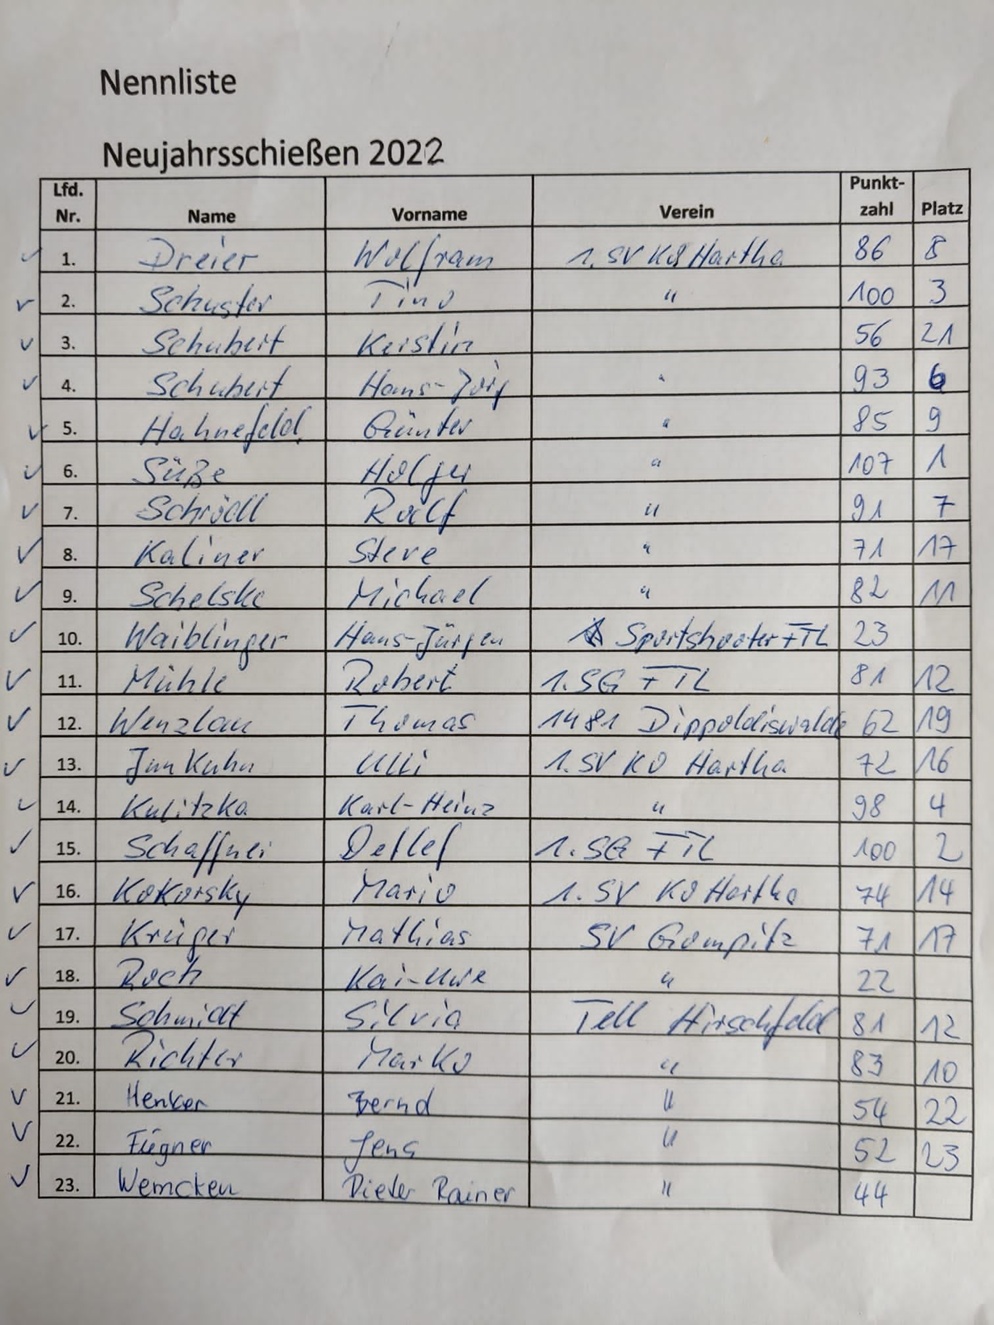 Nennliste
Neujahrsschießen 2022
Lfd. Nr. Name Vorname Verein Punkt-zahl Platz
1. Dreier Wolfram 1. SV KO Hartha 86 8
2. Schuster Tino " 100 3
3. Schubert Kerstin 56 21
4. Schubert Hans-Jörg " 93 6
5. Hahnefeld Günter " 85 9
6. Süße Holger " 107 1
7. Schrödl Rolf " 91 7
8. Kaliner Steve " 71 17
9. Schelske Michael " 82 11
10. Waiblinger Hans-Jürgen Sportshooter FTL 23
11. Mühle Robert 1. SG FTL 81 12
12. Wenzlau Thomas 1481 Dippoldiswalde 62 19
13. Kuhn Ulli 1. SV KO Hartha 72 16
14. Kulitzka Karl-Heinz " 98 4
15. Schaffner Detlef 1. SG FTL 100 2
16. Kokorsky Mario 1. SV KO Hartha 74 14
17. Krüger Mathias SV Gompitz 71 17
18. Roch Kai-Uwe " 22
19. Schmidt Silvia Tell Hirschfeld 81 12
20. Richter Marko " 83 10
21. Henker Bernd " 54 22
22. Fügner Jens " 52 23
23. Wemcken Dieter Rainer " 44